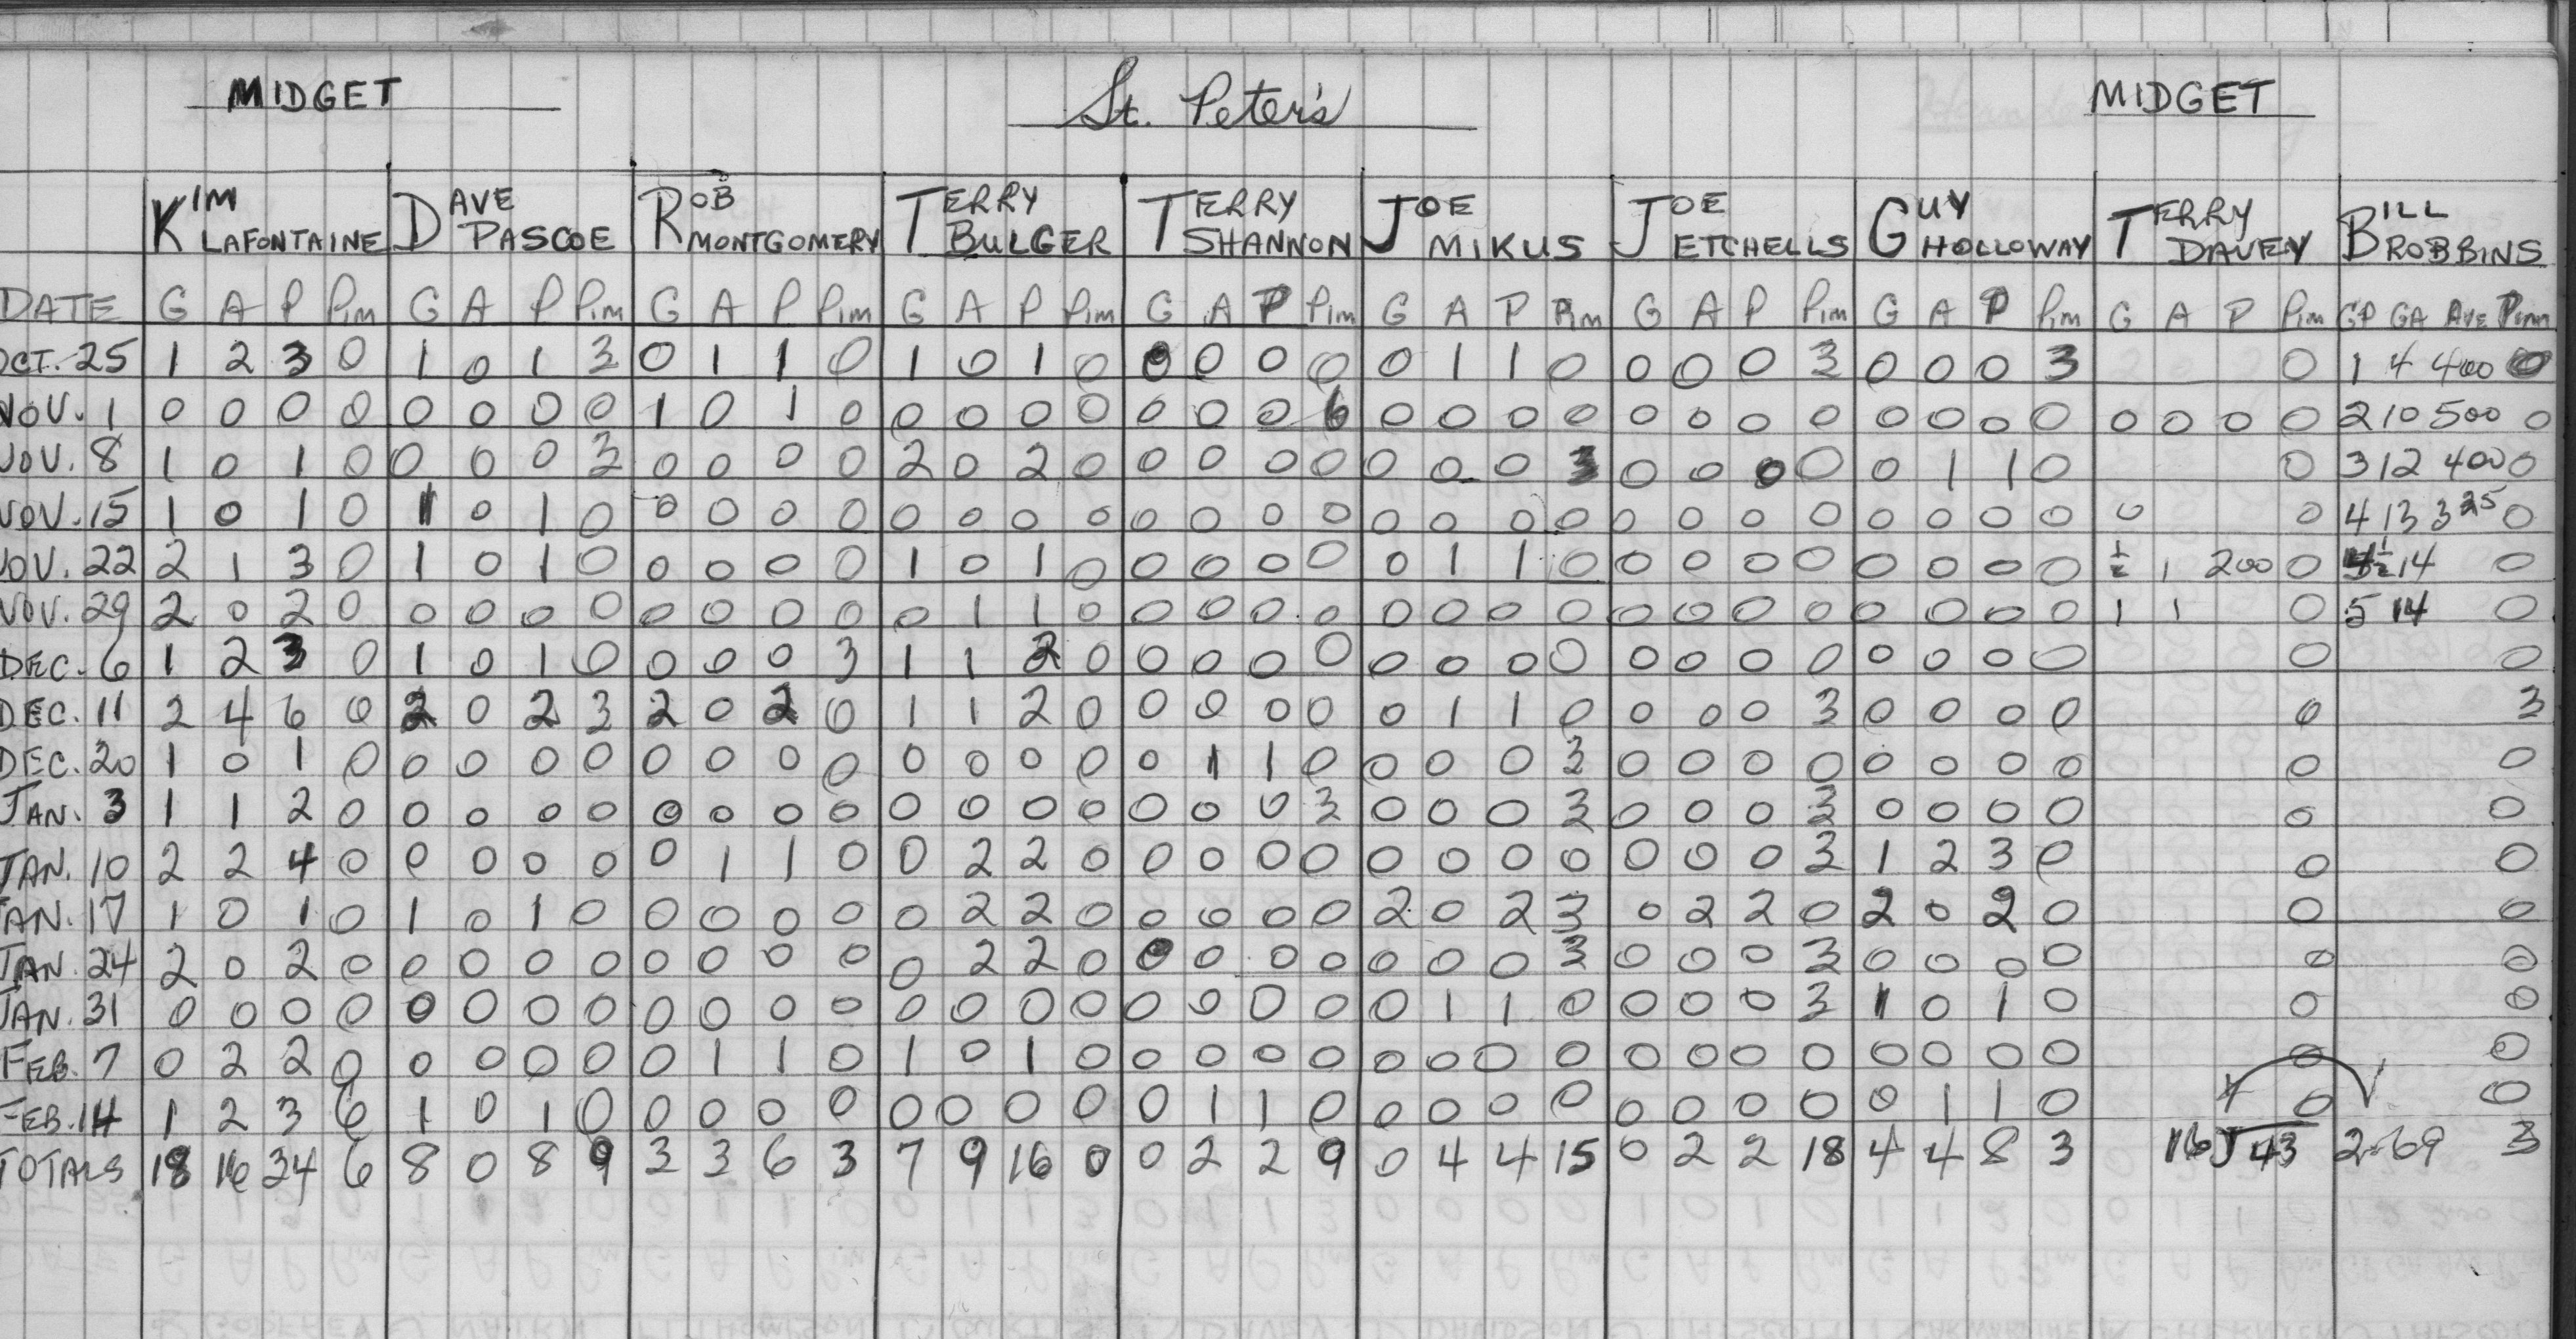 MIDGET St. Peter's MIDGET
KIM LAFONTAINE DAVE PASCOE ROB MONTGOMERY TERRY BULGER TERRY SHANNON JOE MIKUS JOE ETCHELLS GUY HOLLOWAY TERRY DAVEY BILL ROBBINS
DATE G A P Pim G A P Pim G A P Pim G A P Pim G A P Pim G A P Pim G A P Pim G A P Pim G A P Pim GP GA AVE Pim
OCT. 25 1 2 3 0 1 0 1 3 0 1 1 0 1 0 1 0 0 0 0 0 0 1 1 0 0 0 0 3 0 0 0 3 0 1 4 400 0
NOV. 1 0 0 0 0 0 0 0 0 1 0 1 0 0 0 0 0 0 0 0 6 0 0 0 0 0 0 0 0 0 0 0 0 0 0 0 0 2 10 500 0
NOV. 8 1 0 1 0 0 0 0 3 0 0 0 0 2 0 2 0 0 0 0 0 0 0 0 3 0 0 0 0 0 1 1 0 0 3 12 400 0
NOV. 15 1 0 1 0 1 0 1 0 0 0 0 0 0 0 0 0 0 0 0 0 0 0 0 0 0 0 0 0 0 0 0 0 0 0 4 13 325 0
NOV. 22 2 1 3 0 1 0 1 0 0 0 0 0 1 0 1 0 0 0 0 0 0 1 1 0 0 0 0 0 0 0 0 0 1/2 1 200 0 4 1/2 14 0
NOV. 29 2 0 2 0 0 0 0 0 0 0 0 0 0 1 1 0 0 0 0 0 0 0 0 0 0 0 0 0 0 0 0 0 1 1 0 5 14 0
DEC. 6 1 2 3 0 1 0 1 0 0 0 0 3 1 1 2 0 0 0 0 0 0 0 0 0 0 0 0 0 0 0 0 0 0 0
DEC. 11 2 4 6 0 2 0 2 3 2 0 2 0 1 1 2 0 0 0 0 0 0 1 1 0 0 0 0 3 0 0 0 0 0 3
DEC. 20 1 0 1 0 0 0 0 0 0 0 0 0 0 0 0 0 0 1 1 0 0 0 0 3 0 0 0 0 0 0 0 0 0 0
JAN. 3 1 1 2 0 0 0 0 0 0 0 0 0 0 0 0 0 0 0 0 3 0 0 0 3 0 0 0 3 0 0 0 0 0 0
JAN. 10 2 2 4 0 0 0 0 0 0 1 1 0 0 2 2 0 0 0 0 0 0 0 0 0 0 0 0 3 1 2 3 0 0 0
JAN. 17 1 0 1 0 1 0 1 0 0 0 0 0 0 2 2 0 0 0 0 0 2 0 2 3 0 2 2 0 2 0 2 0 0 0
JAN. 24 2 0 2 0 0 0 0 0 0 0 0 0 0 2 2 0 0 0 0 0 0 0 0 3 0 0 0 3 0 0 0 0 0 0
JAN. 31 0 0 0 0 0 0 0 0 0 0 0 0 0 0 0 0 0 0 0 0 0 1 1 0 0 0 0 3 1 0 1 0 0 0
FEB. 7 0 2 2 0 0 0 0 0 0 1 1 0 1 0 1 0 0 0 0 0 0 0 0 0 0 0 0 0 0 0 0 0 0 0
FEB. 14 1 2 3 6 1 0 1 0 0 0 0 0 0 0 0 0 0 1 1 0 0 0 0 0 0 0 0 0 0 1 1 0 0 0
TOTALS 18 16 34 6 8 0 8 9 3 3 6 3 7 9 16 0 0 2 2 9 0 4 4 15 0 2 2 18 4 4 8 3 16 43 2.69 3